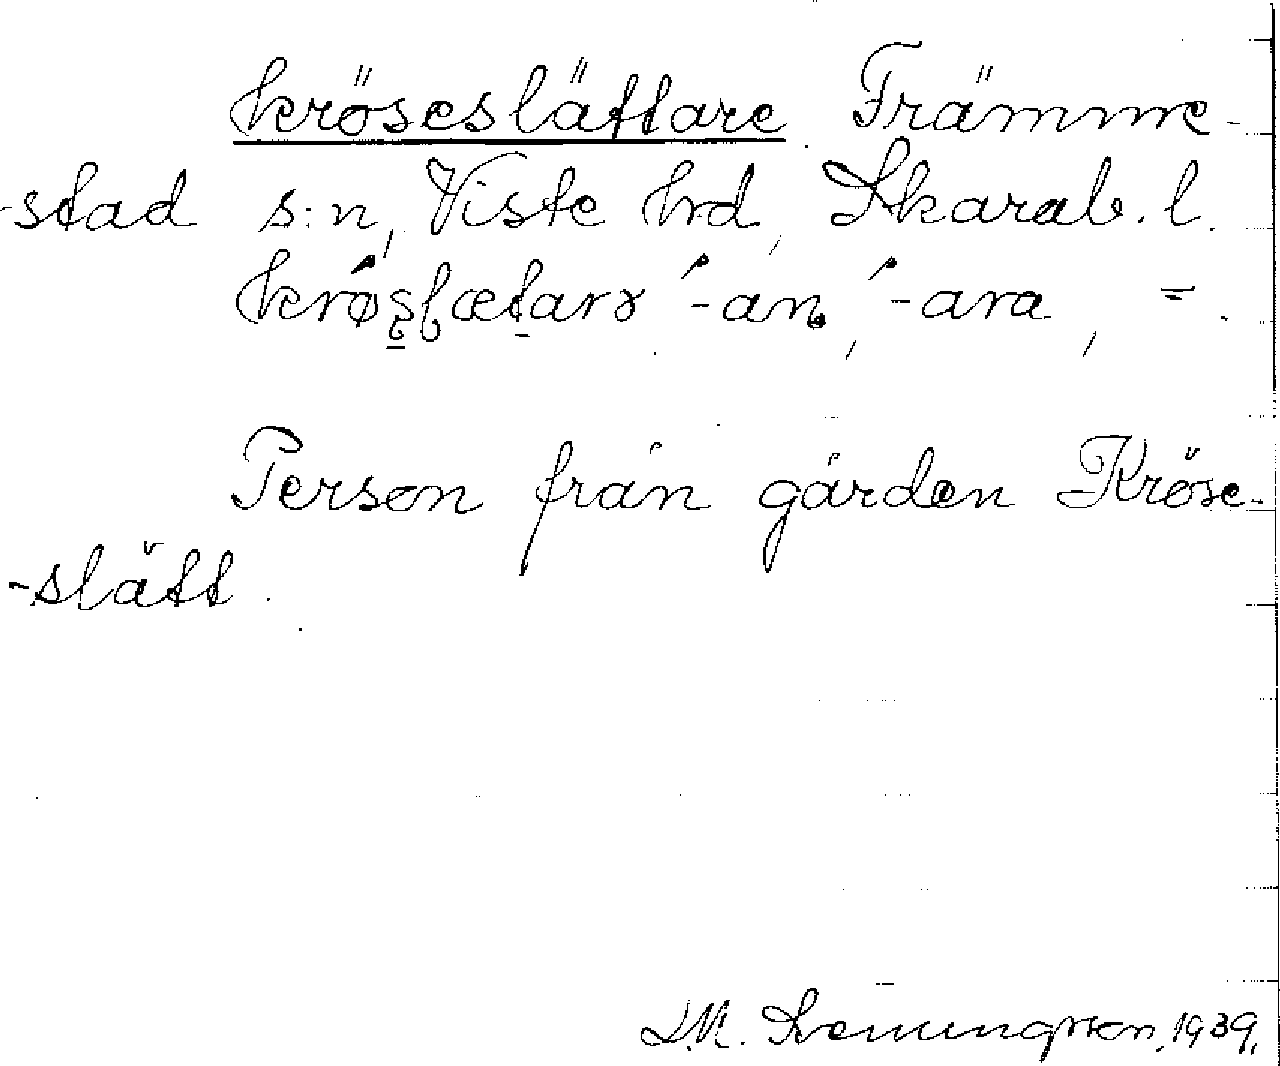 kröseslättare Främme-
-stad s:n, Viste hrd, Skarab. l.
krøs̲læt̲arə ´-an, ´-ara, =.
Person från gården Kröse-
-slätt.
1939.